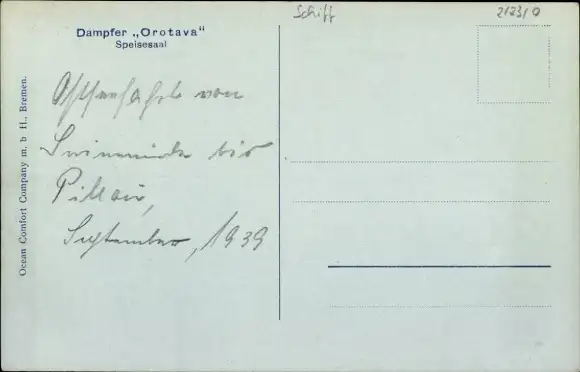 Schiff
21231 Q
Dampfer „Orotava“
Speisesaal
von
Swinemünde bis
Pillau,
September, 1939
Ocean Comfort Company m. b H., Bremen.